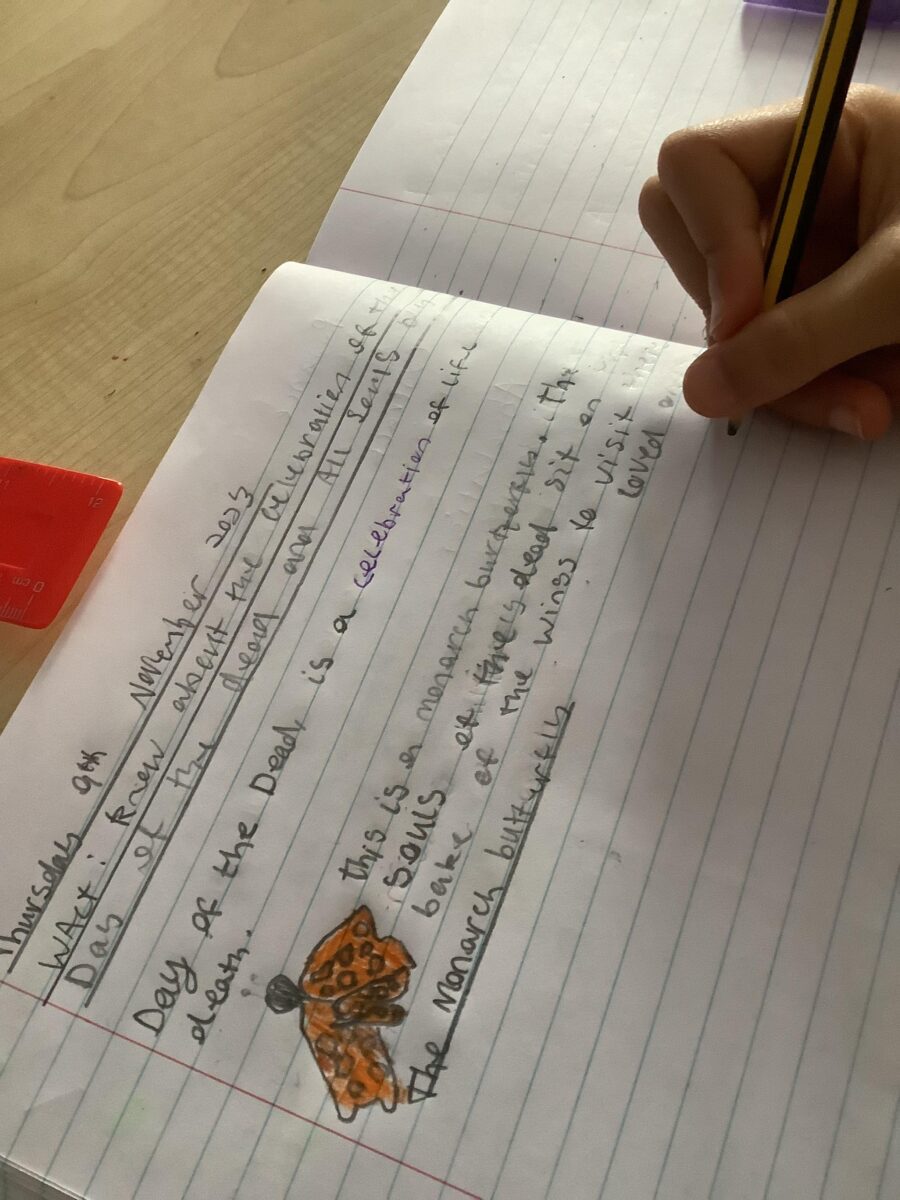 Thursday 9th November 2023
WALT: know about the celebration of the
Day of the dead and All Souls
Day of the Dead, is a celebration of life
death.
this is a monarch butterfly. the
souls of the dead sit on
bake of the wings to visit
loved
The Monarch butturfly
0 cm
12